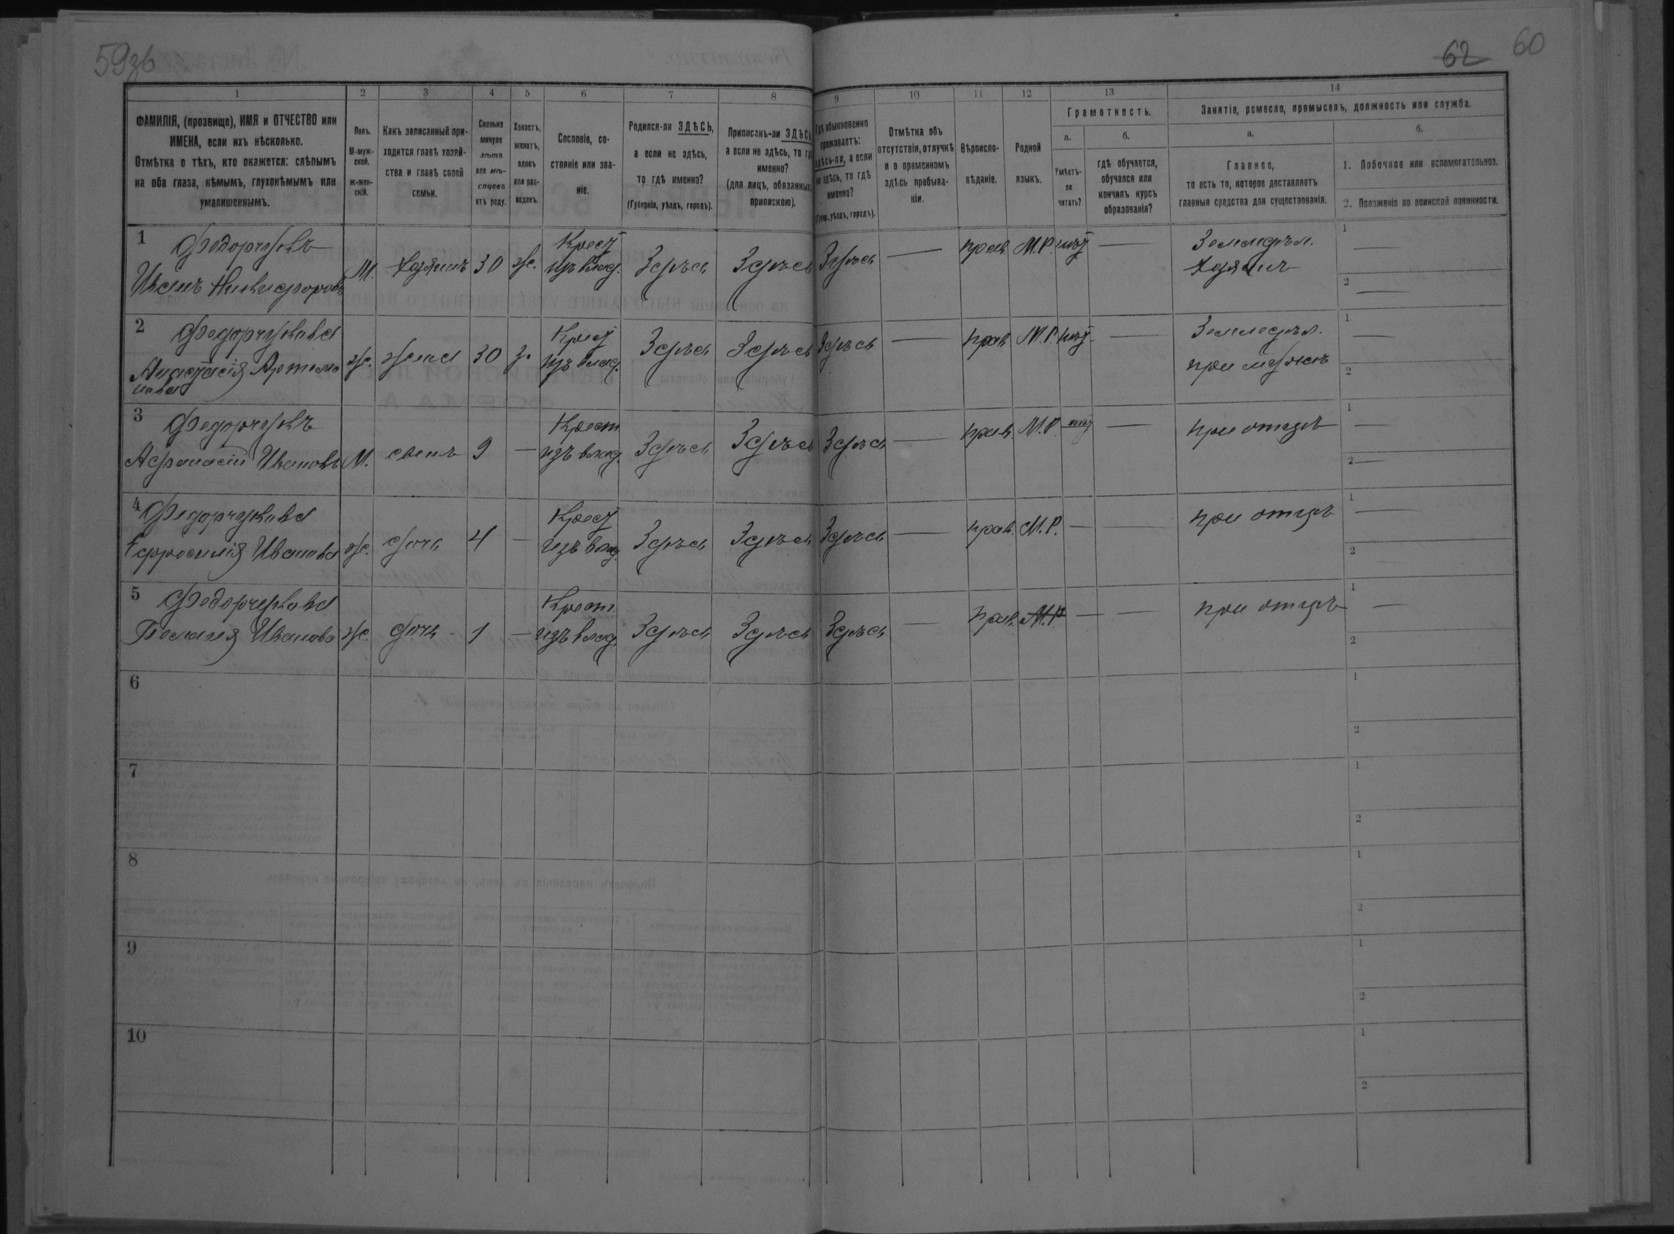 59зв
62 60
1 2 3 4 5 6 7 8 9 10 11 12 13 14
ФАМИЛІЯ, (прозвище), ИМЯ и ОТЧЕСТВО или
ИМЕНА, если ихъ нѣсколько.
Отмѣтка о тѣхъ, кто окажется: слѣпымъ
на оба глаза, нѣмымъ, глухонѣмымъ или
умалишеннымъ.
Полъ.
М-муж-
ской.
Ж-жен-
скій.
Какъ записанный при-
ходится главѣ хозяй-
ства и главѣ своей
семьи.
Сколько
минуло
лѣтъ
или мѣ-
сяцевъ
отъ роду.
Холостъ,
женатъ,
вдовъ
или раз-
веденъ.
Сословіе, со-
стояніе или зва-
ніе.
Родился-ли ЗДѢСЬ,
а если не здѣсь,
то гдѣ именно?
(Губернія, уѣздъ, городъ).
Приписанъ-ли ЗДѢСЬ,
а если не здѣсь, то гдѣ
именно?
(для лицъ, обязанныхъ
припискою).
Гдѣ обыкновенно
проживаетъ:
здѣсь-ли, а если
не здѣсь, то гдѣ
именно?
(Губер., уѣздъ, городъ).
Отмѣтка объ
отсутствіи, отлучкѣ
и о временномъ
здѣсь пребыва-
ніи.
Вѣроиспо-
вѣданіе.
Родной
языкъ.
Грамотность.
а.
Умѣетъ-
ли
читать?
б.
гдѣ обучается,
обучался или
кончилъ курсъ
образованія?
Занятіе, ремесло, промыселъ, должность или служба.
а.
Главное,
то есть то, которое доставляетъ
главныя средства для существованія.
б.
1. Побочное или вспомогательное.
2. Положеніе по воинской повинности.
1 Федорчукъ Крест. Земледѣл.
Иванъ Никифоровъ М. хозяинъ 30 ж. изъ влад. Здѣсь Здѣсь Здѣсь — прав. М.Р. нѣт — хозяинъ
2 Федорчукова Крест. Земледѣл.
Анастасія Артемо
нова ж. жена 30 з. изъ влад. Здѣсь Здѣсь Здѣсь — прав. М.Р. нѣт — при мужѣ
3 Федорчукъ Крест.
Афанасій Ивановъ М. сынъ 9 — изъ влад. Здѣсь Здѣсь Здѣсь — прав. М.Р. нѣт — при отцѣ
4 Федорчукова Крест.
Ефросинія Иванова ж. дочь 4 — изъ влад. Здѣсь Здѣсь Здѣсь — прав. М.Р. — — при отцѣ
5 Федорчукова Крест.
Пелагія Иванова ж. дочь 1 — изъ влад. Здѣсь Здѣсь Здѣсь — прав. М.Р. — — при отцѣ
6
7
8
9
10